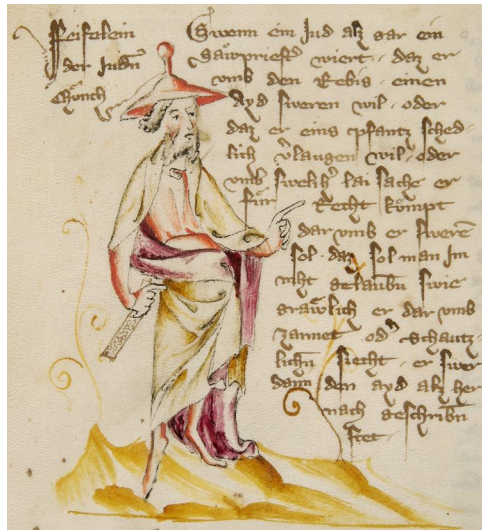 Feifelein
der Judn̄
Chönch
Swenn ein Jud alz gar ein
daz er
vmb den Rebig · einen
Ayd sweren wil · oder
daz er eins pfantz sched-
lich v̓laugen wil · oder
vmb swelich̓ lai sache er
für Recht kömpt
dar vmb er swerē
sol · daz sol man Im
niht gelaubn̄ swie
gräwlich er dar vmb
zannet · od̓ schautz
lichn̄ siecht · er swer
dann den ayd alz her
nach geschribn̄
stet ·